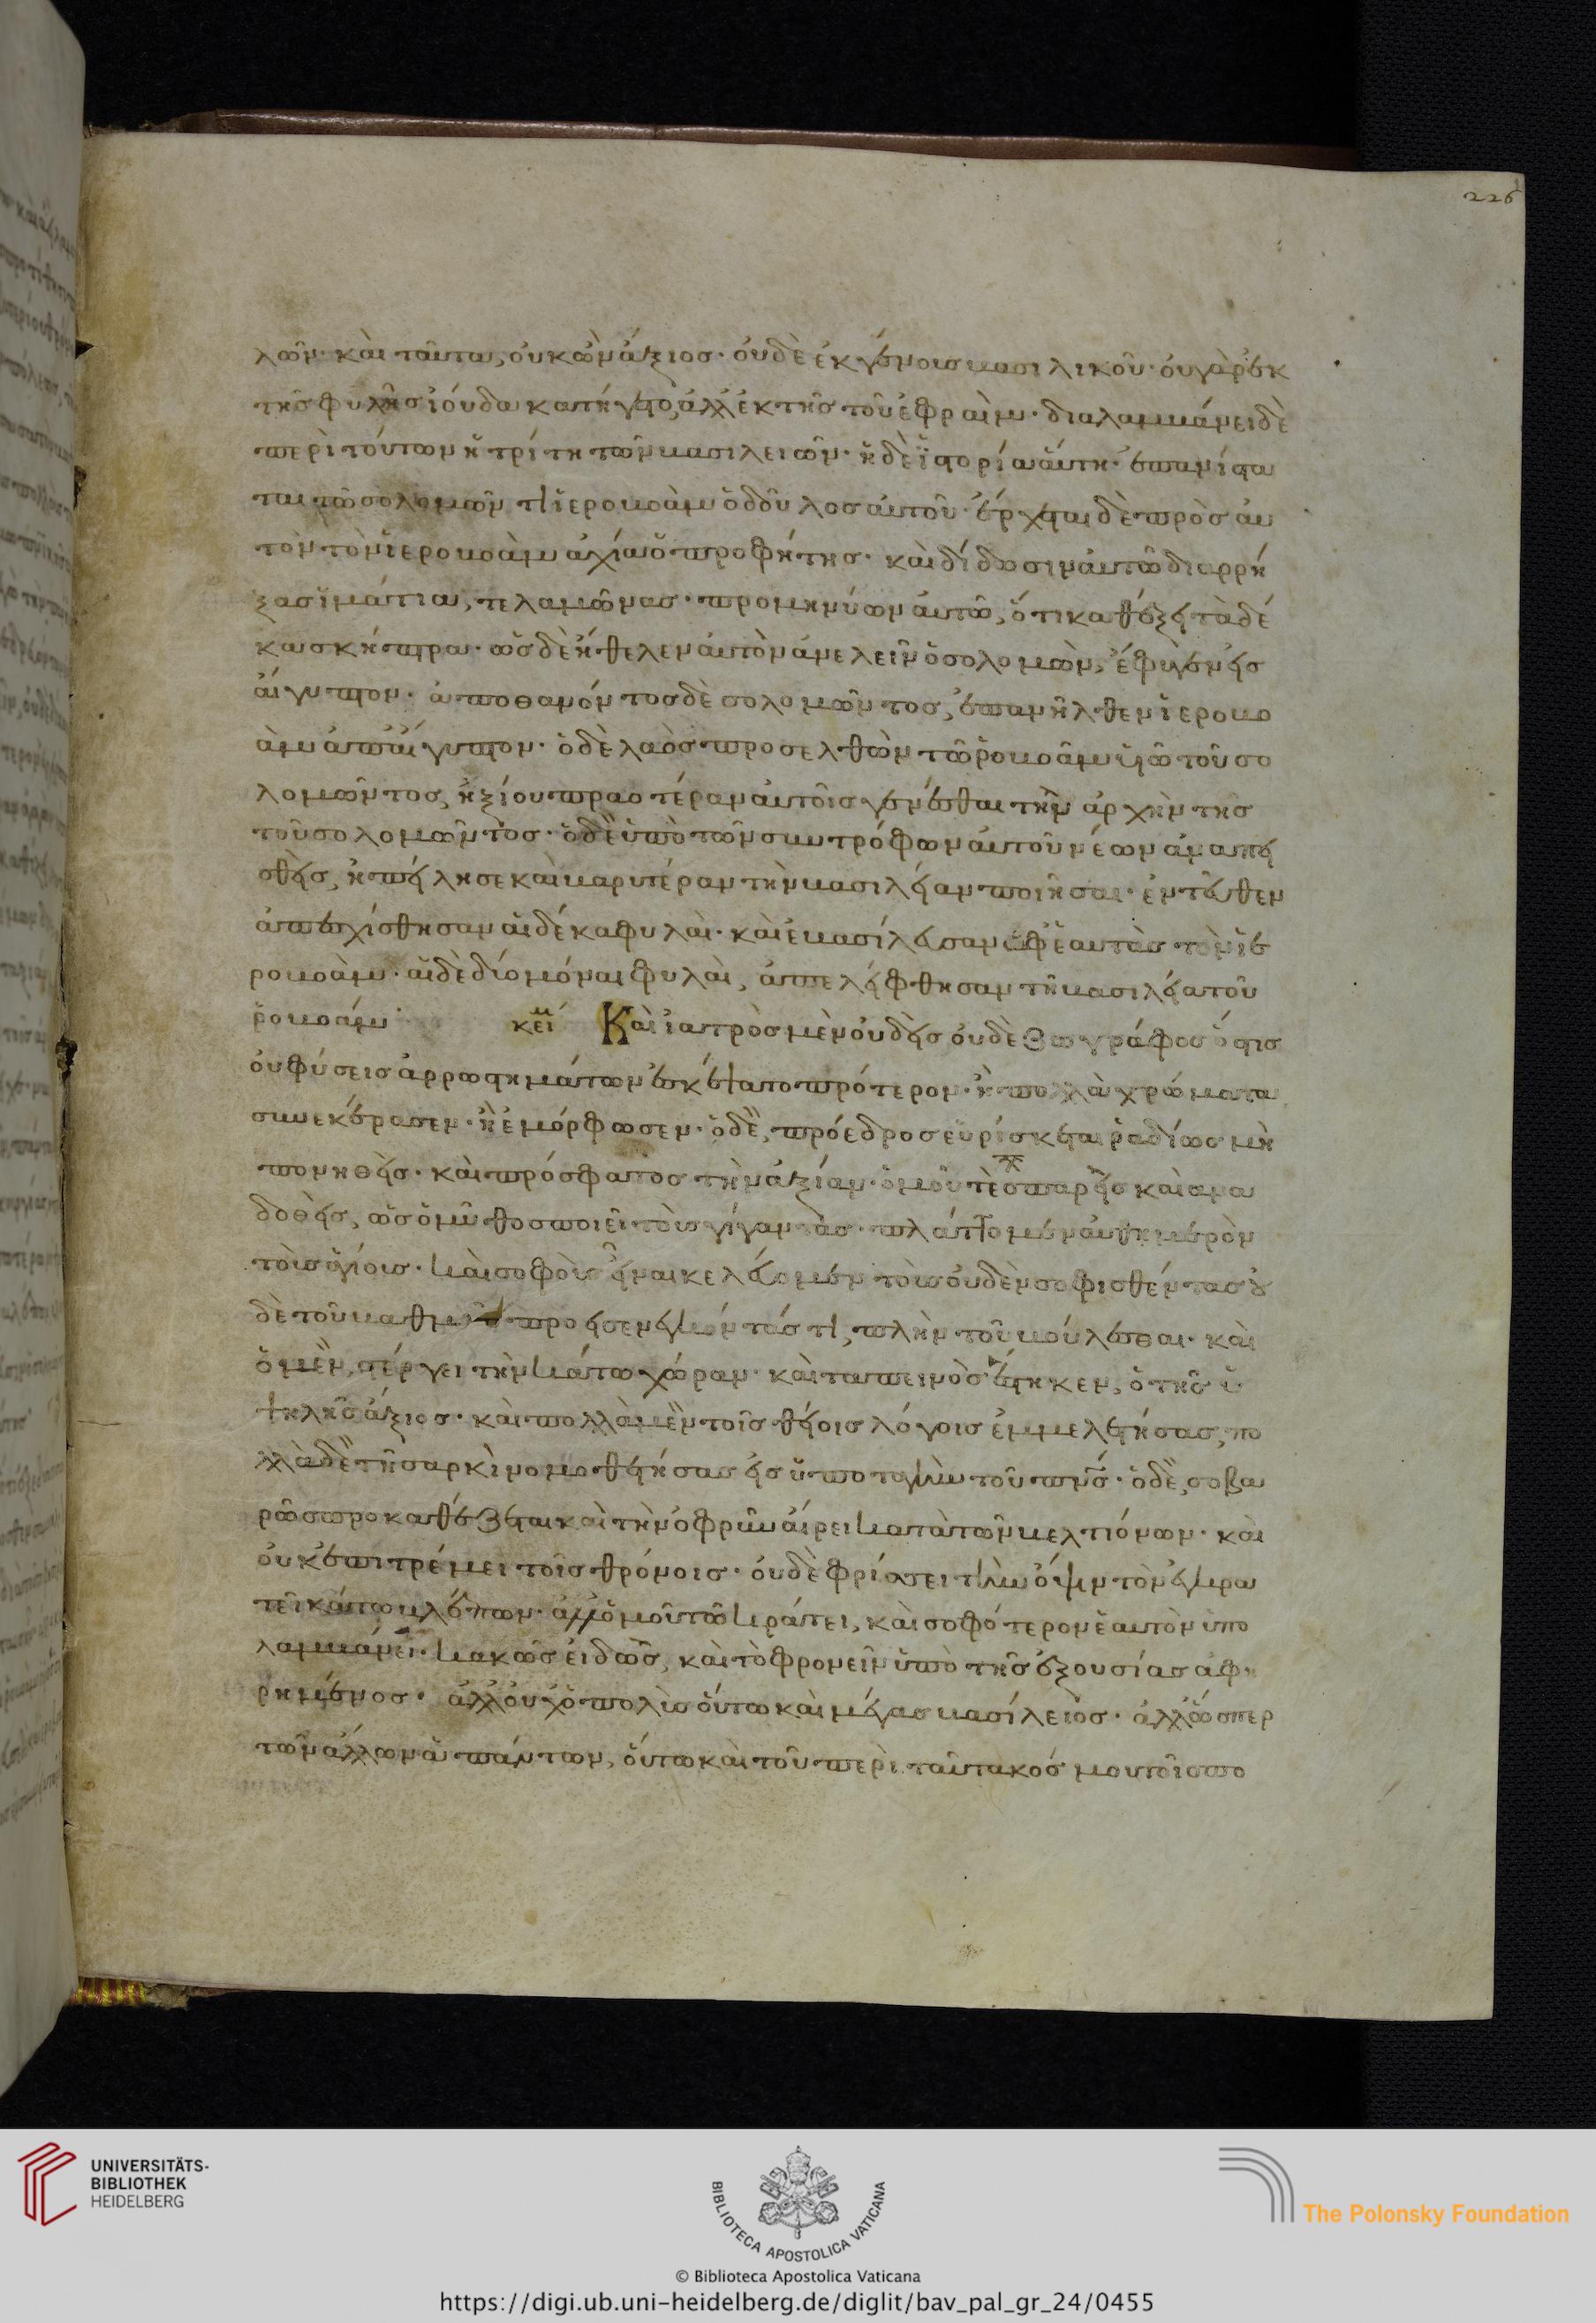 226
λῶν· καὶ ταῦτα, οὐκ ὢν ἄξιος· οὐδὲ ἐκ γένους βασιλικοῦ· οὐ γὰρ ἐκ
τῆς φυλῆς ἰούδα κατήγετο, ἀλλ' ἐκ τῆς τοῦ ἐφραίμ· διαλαμβάνει δὲ
περὶ τούτων ἡ τρίτη τῶν βασιλειῶν· ἡ δὲ ἱστορία αὕτη· ἐπανίστα
ται τῶ σολομῶντι ἱεροβοὰμ ὁ δοῦλος αὐτοῦ· ἔρχεται δὲ πρὸς αὐ
τὸν τὸν ἱεροβοὰμ ἀχία ὁ προφήτης· καὶ δίδωσιν αὐτῶ διαρρή
ξας ἱμάτια, τελαμῶνας· προμηνύων αὐτῶ, ὅτι καθέξει τὰ δέ
κα σκῆπτρα· ὡς δὲ ἤθελεν αὐτὸν ἀνελεῖν ὁ σολομὼν, ἔφυγεν εἰς
αἴγυπτον· ἀποθανόντος δὲ σολομῶντος, ἐπανῆλθεν ἱεροβο
ὰμ ἀπ' αἰγύπτου· ὁ δὲ λαὸς προσελθὼν τῶ ῥοβοὰμ υἱῶ τοῦ σο
λομῶντος, ἠξίου πραοτέραν αὐτοῖς γενέσθαι τὴν ἀρχὴν τῆς
τοῦ σολομῶντος· ὁ δὲ ὑπὸ τῶν συντρόφων αὐτοῦ νέων ἀναπει
σθεὶς, ἠπείλησε καὶ βαρυτέραν τὴν βασιλείαν ποιῆσαι· ἐντεῦθεν
ἀπεσχίσθησαν αἱ δέκα φυλαὶ· καὶ ἐβασίλευσαν ἐφ' ἑαυτὰς τὸν ἱε
ροβοὰμ· αἱ δὲ δύο μόναι φυλαὶ, ἀπελείφθησαν τῆ βασιλεία τοῦ
ῥοβοάμ· κείμ Καὶ ἰατρὸς μὲν οὐδεὶς οὐδὲ ζωγράφος ὅστις
οὐ φύσεις ἀρρωστημάτων ἐσκέψατο πρότερον· ἢ πολλὰ χρώματα
συνεκέρασεν· ἢ ἐμόρφωσεν· ὁ δὲ, πρόεδρος εὑρίσκεται ῥαδίως μὴ
πονηθεὶς· καὶ πρόσφατος τὴν ἀξίαν· ὁμοῦ τὲ σπαρεὶς καὶ ἀνα
δοθεὶς, ὡς ὁ μῦθος ποιεῖ τοὺς γίγαντας· πλάττομεν αὐθημερὸν
τοὺς ἁγίους· καὶ σοφοὺς εἶναι κελεύομεν τοὺς οὐδὲν σοφισθέντας οὐ
δὲ τοῦ βαθμοῦ προεισενεγκόντάς τι, πλὴν τοῦ βούλεσθαι· καὶ
ὁ μὲν, στέργει τὴν κάτω χώραν· καὶ ταπεινὸς ἕστηκεν, ὁ τῆς ὑ
ψηλῆς ἄξιος· καὶ πολλὰ μὲν τοῖς θείοις λόγοις ἐμμελετήσας, πο
λλὰ δὲ τῆ σαρκὶ νομοθετήσας εἰς ὑποταγὴν τοῦ πνς· ὁ δὲ, σοβα
ρῶς προκαθέζεται καὶ τὴν ὀφρῦν αἴρει κατὰ τῶν βελτιόνων· καὶ
οὐκ ἐπιτρέμει τοῖς θρόνοις· οὐδὲ φρίττει τὴν ὄψιν τὸν ἐγκρα
τῆ κάτω βλέπων· ἀλλ' ὁμοῦ τῶ κράτει, καὶ σοφότερον ἑαυτὸν ὑπο
λαμβάνει· κακῶς εἰδὼς, καὶ τὸ φρονεῖν ὑπὸ τῆς ἐξουσίας ἀφη
ρημένος· ἀλλ' οὐχ' ὁ πολὺς οὕτω καὶ μέγας βασίλειος· ἀλλ' ὥσπερ
τῶν ἄλλων ἁπάντων, οὕτω καὶ τοῦ περὶ ταῦτα κόσμου τοῖς πο
UNIVERSITÄTS-
BIBLIOTHEK
HEIDELBERG
BIBLIOTECA APOSTOLICA VATICANA
The Polonsky Foundation
© Biblioteca Apostolica Vaticana
https://digi.ub.uni-heidelberg.de/diglit/bav_pal_gr_24/0455